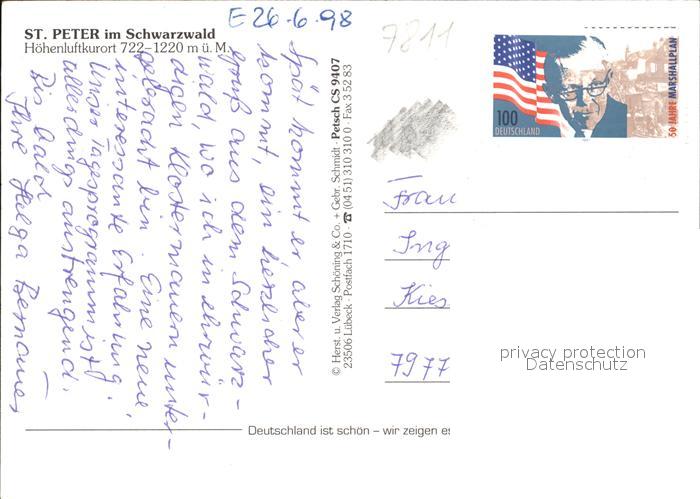 E 26-6.98
7811
ST. PETER im Schwarzwald
Höhenluftkurort 722–1220 m ü. M.
Spät kommt er, aber er
kommt, ein herzlicher
Gruß aus dem Schwarz-
wald, wo ich in ehrwür-
digen Klostermauern unter-
gebracht bin. Eine neue,
interessante Erfahrung.
Unser Tagesprogramm ist
allerdings anstrengend.
Bis bald
Ihre Helga
© Herst. u. Verlag Schöning & Co. + Gebr. Schmidt · Petsch CS 9407
23506 Lübeck · Postfach 1710 · ☎ (04 51) 310 310 0 · Fax 3 52 83
100
DEUTSCHLAND
50 JAHRE MARSHALLPLAN
Frau
Ing
Kies
7977
privacy protection
Datenschutz
Deutschland ist schön – wir zeigen es